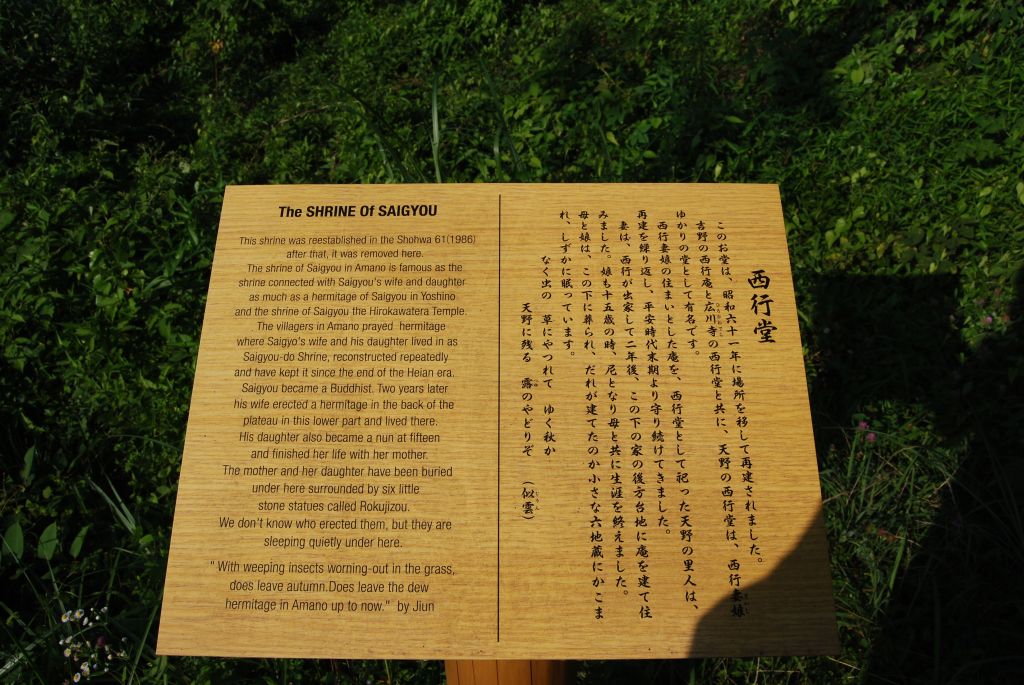 The SHRINE Of SAIGYOU
This shrine was reestablished in the Shohwa 61(1986)
after that, it was removed here.
The shrine of Saigyou in Amano is famous as the
shrine connected with Saigyou's wife and daughter
as much as a hermitage of Saigyou in Yoshino
and the shrine of Saigyou the Hirokawatera Temple.
The villagers in Amano prayed hermitage
where Saigyo's wife and his daughter lived in as
Saigyou-do Shrine, reconstructed repeatedly
and have kept it since the end of the Heian era.
Saigyou became a Buddhist. Two years later
his wife erected a hermitage in the back of the
plateau in this lower part and lived there.
His daughter also became a nun at fifteen
and finished her life with her mother.
The mother and her daughter have been buried
under here surrounded by six little
stone statues called Rokujizou.
We don't know who erected them, but they are
sleeping quietly under here.
" With weeping insects worning-out in the grass,
does leave autumn.Does leave the dew
hermitage in Amano up to now." by Jiun
西行堂
このお堂は、昭和六十一年に場所を移して再建されました。
吉野の西行庵と広川寺の西行堂と共に、天野の西行堂は、西行妻娘
ゆかりの堂として有名です。
西行妻娘の住まいとした庵を、西行堂として祀った天野の里人は、
再建を繰り返し、平安時代末期より守り続けてきました。
妻は、西行が出家して二年後、この下の家の後方台地に庵を建て住
みました。娘も十五歳の時、尼となり母と共に生涯を終えました。
母と娘は、この下に葬られ、だれが建てたのか小さな六地蔵にかこま
れ、しずかに眠っています。
なく虫の 草にやつれて ゆく秋か
天野に残る 露のやどりぞ (似雲)